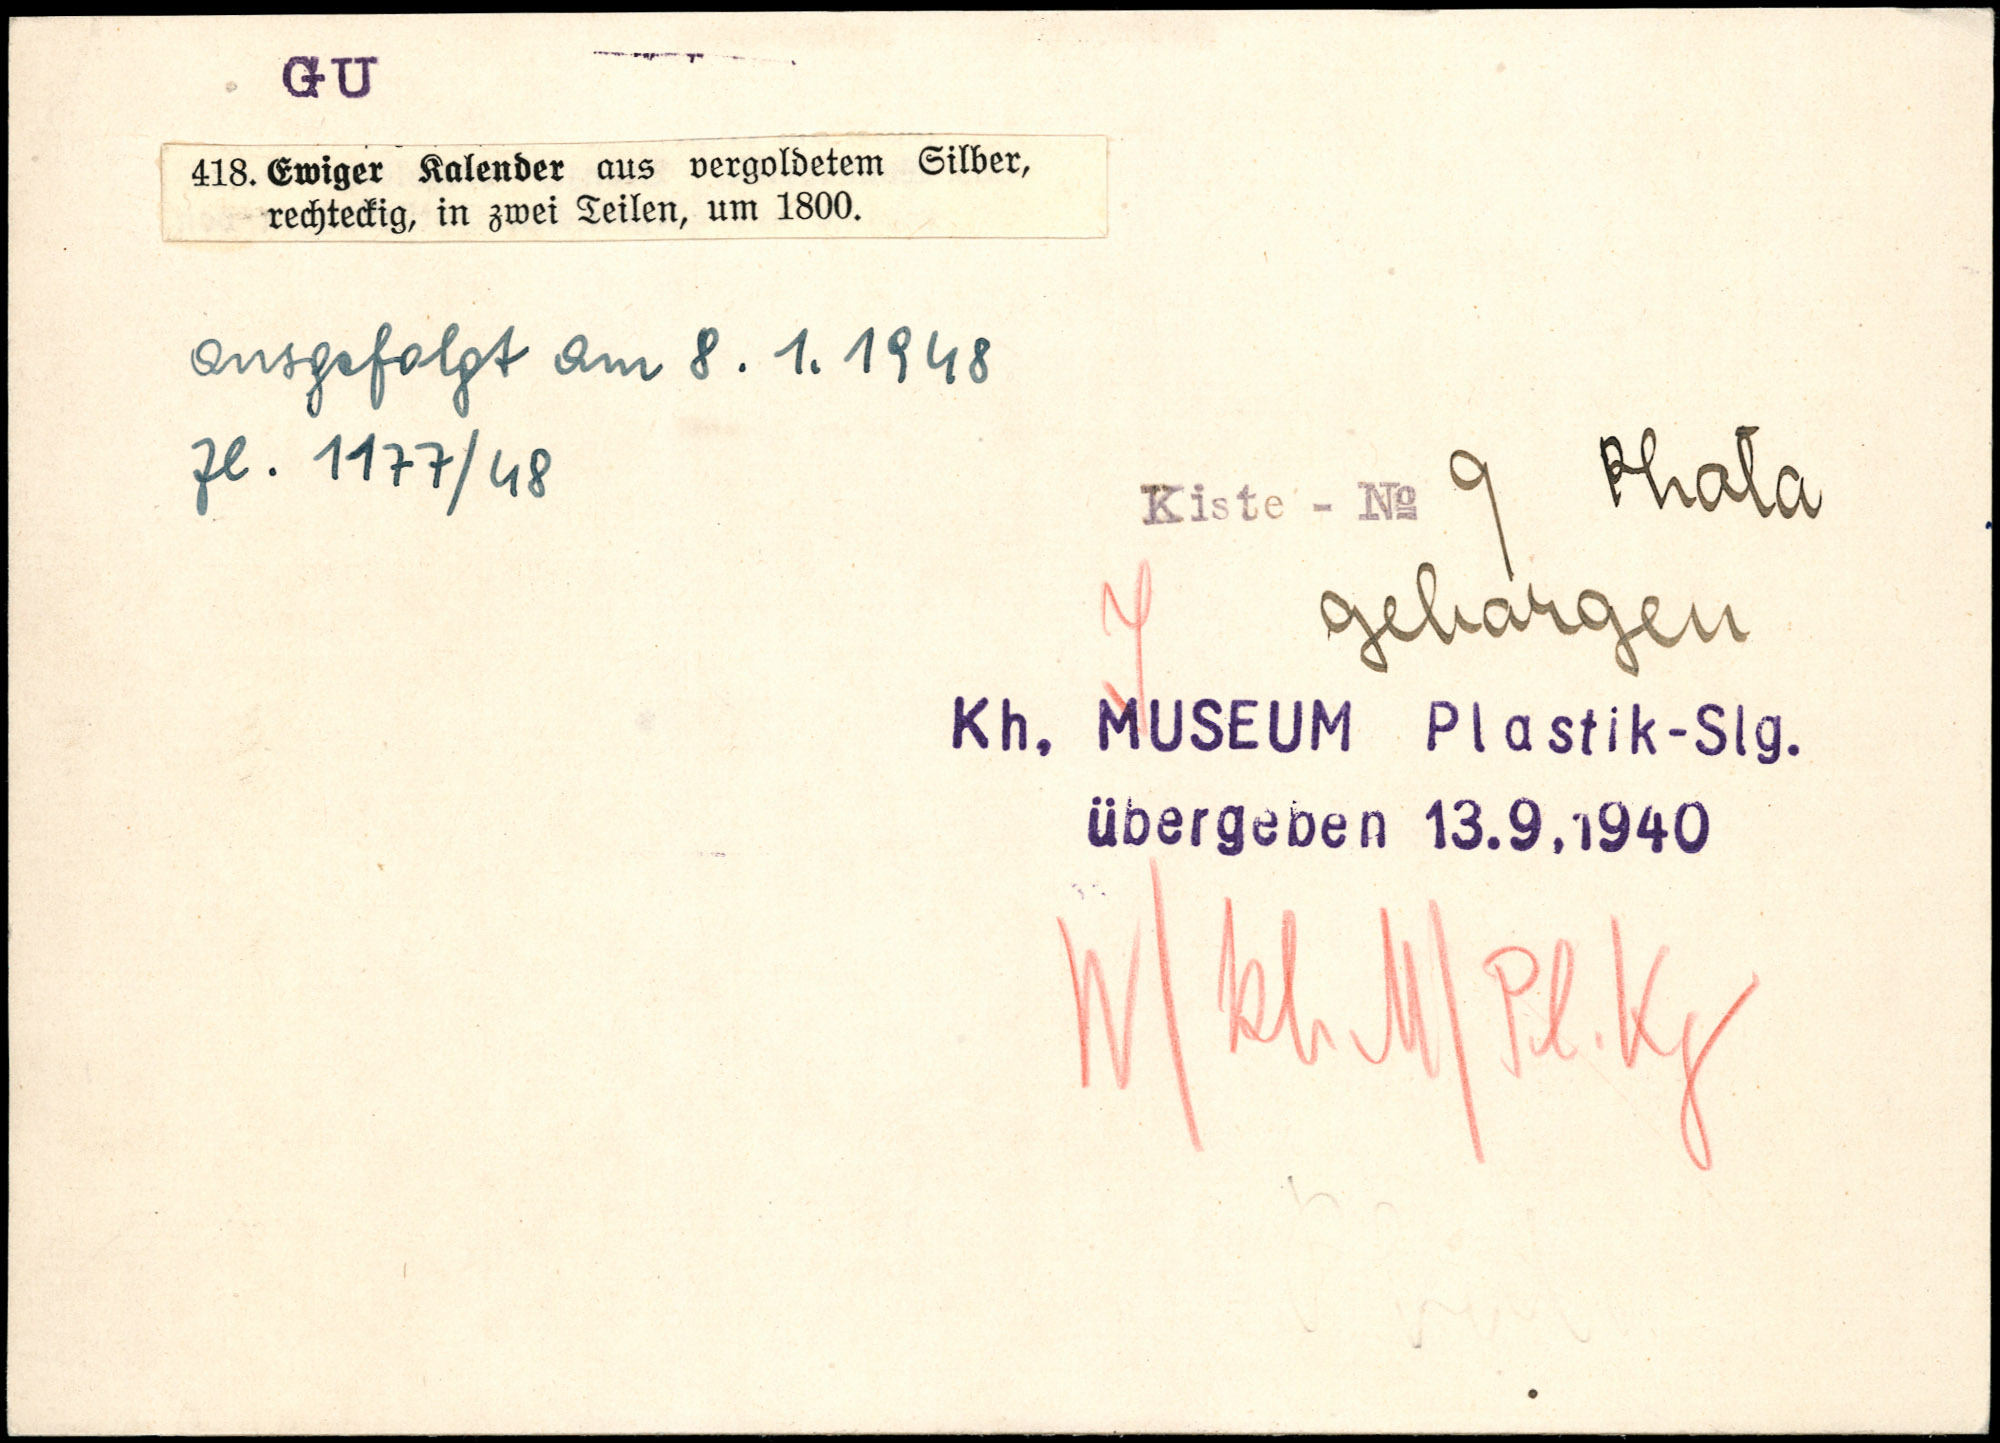 GU
418. Ewiger Kalender aus vergoldetem Silber,
rechteckig, in zwei Teilen, um 1800.
ausgefolgt am 8. 1. 1948
Zl. 1177/48
Kiste - No 9 Photo
geborgen
Kh. MUSEUM Plastik-Slg.
übergeben 13.9.1940
W/kh.M/Pl.Kg